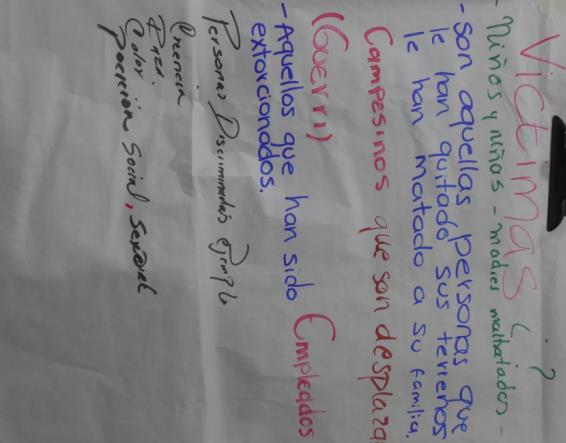 Victimas ¿?
- Niños y niñas - madres maltratados -
- Son aquellas personas que
le han quitado sus terrenos
le han matado a su familia.
Campesinos que son desplaza
(Guerri)
- Aquellos que han sido Empleados
extorcionados.
Personas Discriminadas ejemplo
Creencia
Raza.
Color
Poscicion Social, Sexual